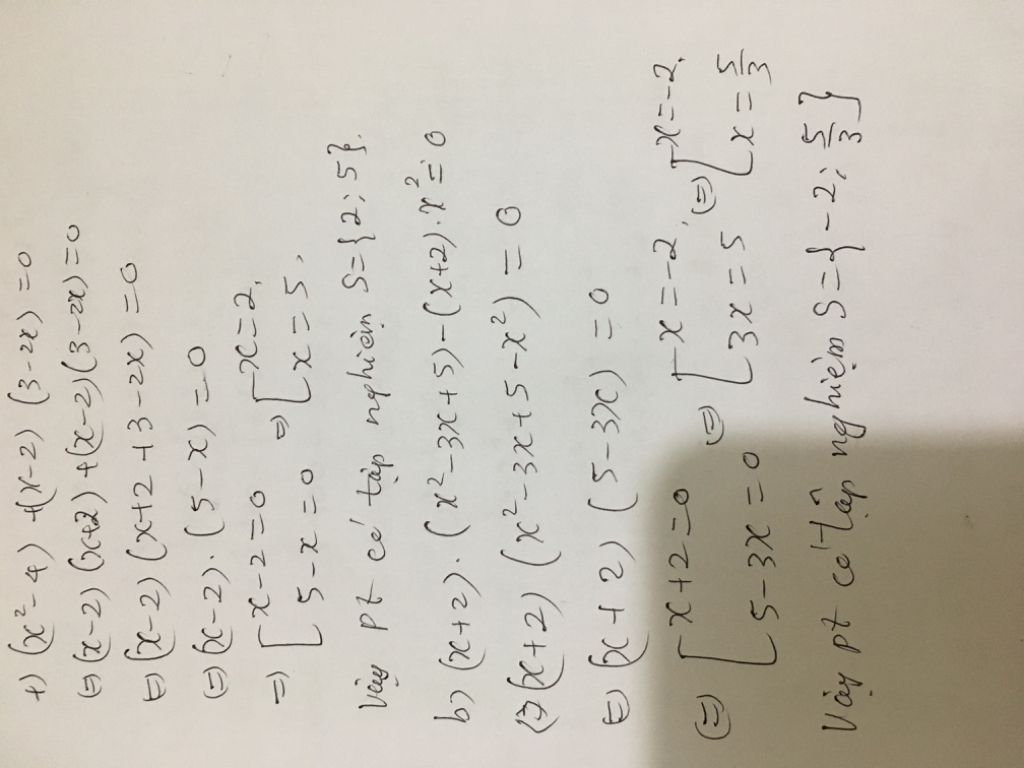 +) (x²-4) +(x-2) (3-2x) =0
(=) (x-2) (x+2) +(x-2)(3-2x)=0
(=) (x-2) (x+2+3-2x) =0
(=) (x-2). (5-x) =0
=) [x-2=0 =) [x=2.
[5-x=0 [x=5.
Vậy pt có tập nghiệm S={2; 5}.
b) (x+2). (x²-3x+5)-(x+2).x²=0
(=) (x+2) (x²-3x+5-x²) =0
(=) (x+2) (5-3x) =0
(=) [x+2=0 (=) [x=-2 (=) [x=-2.
[5-3x=0 [3x=5 [x=5/3
Vậy pt có tập nghiệm S={-2; 5/3}